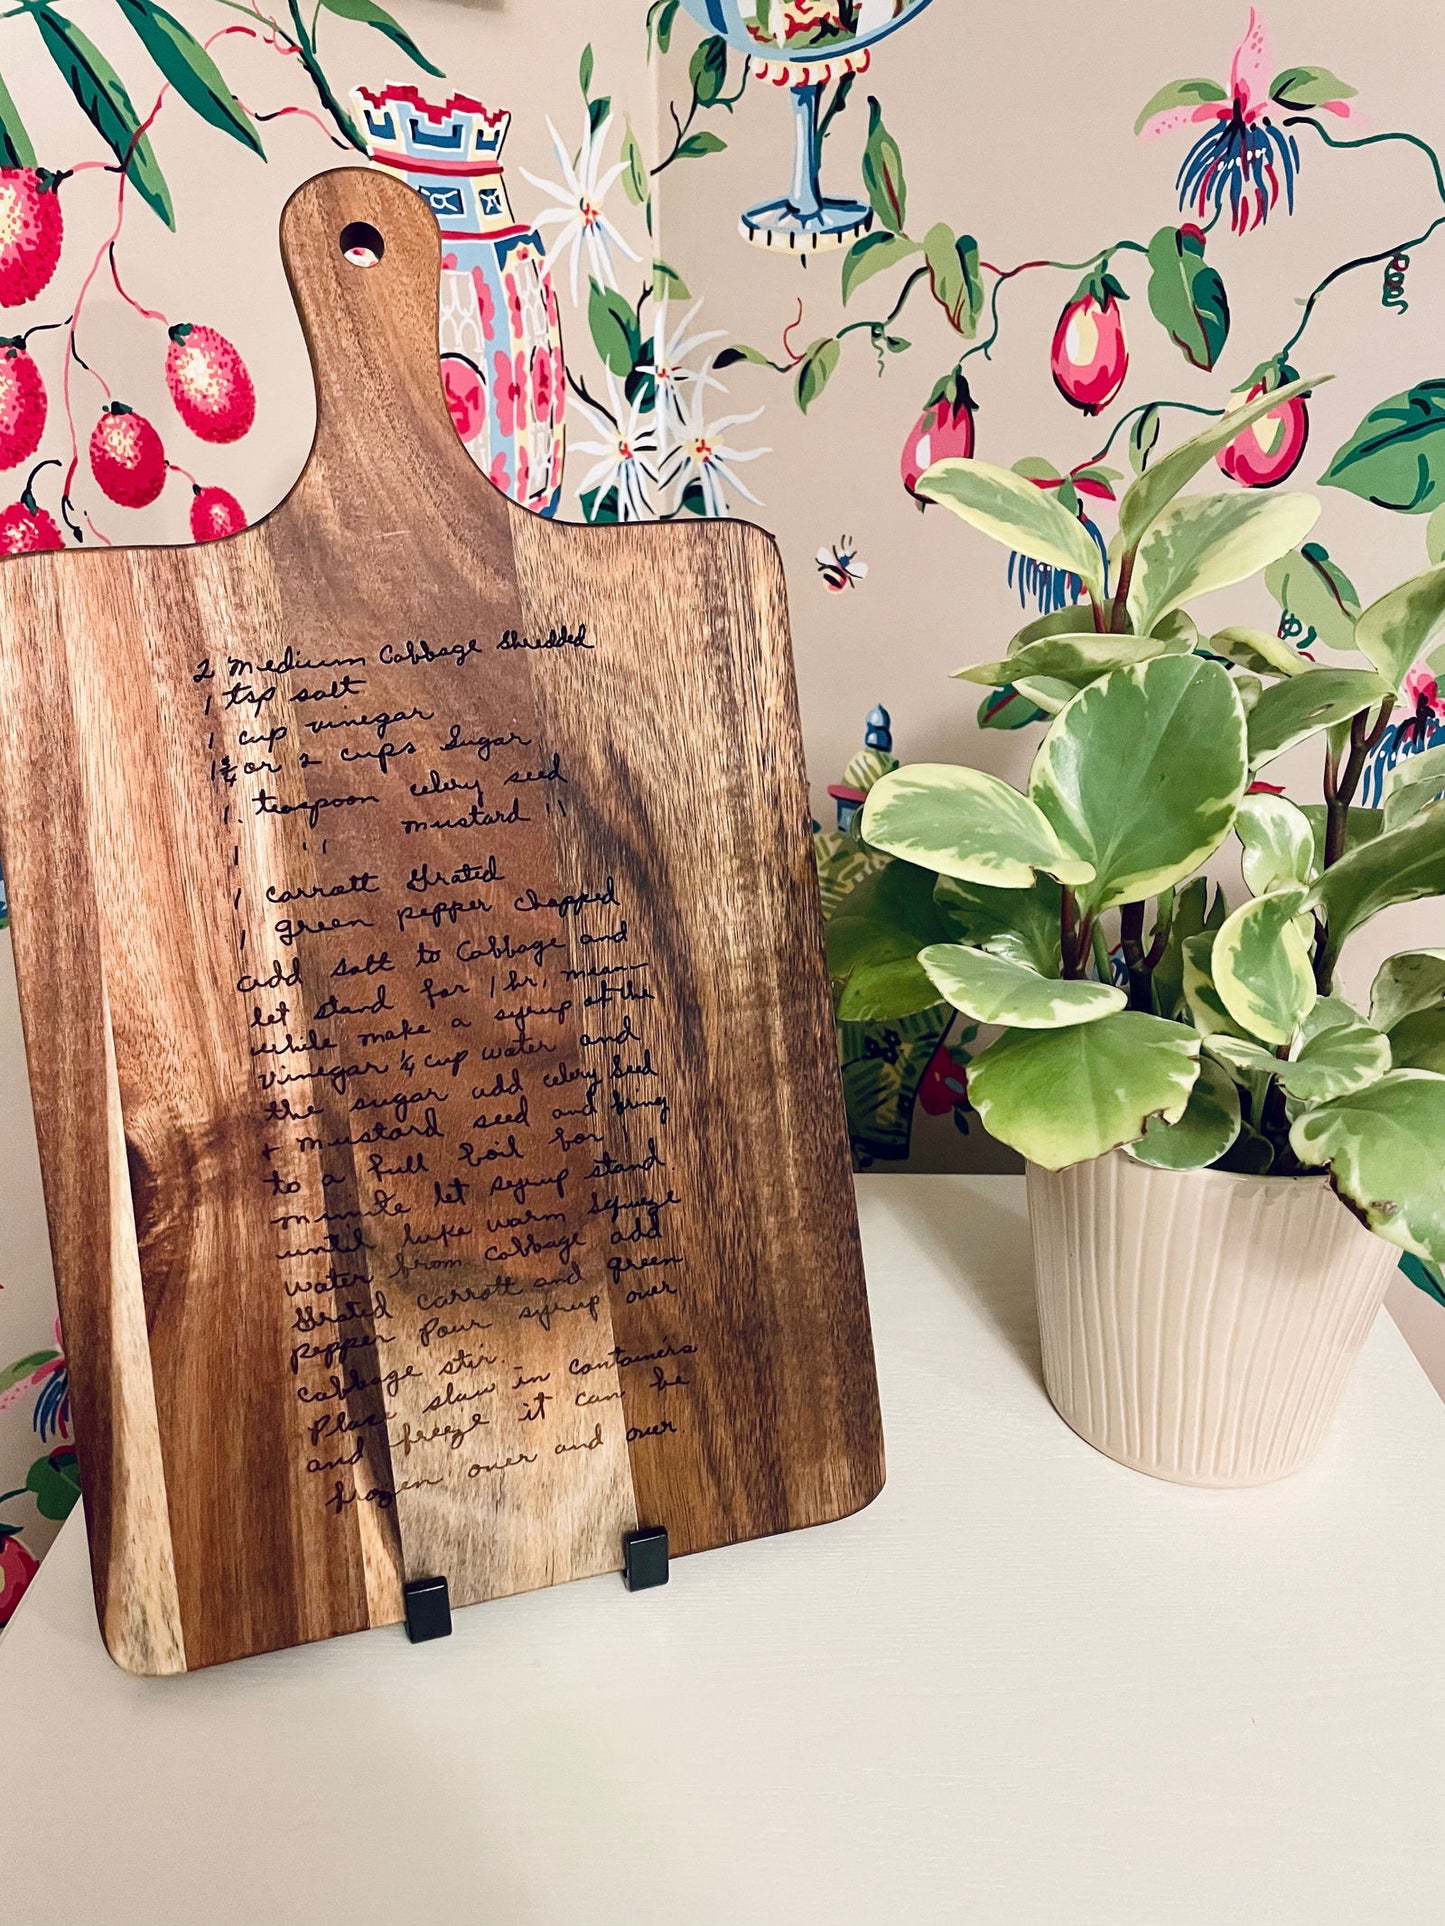 2 Medium Cabbage Shredded
1 tsp salt
1 cup vinegar
1 3/4 or 2 cups Sugar
1. teaspoon celery seed
1 '' mustard ''
1 Carrott Grated
1 green pepper chopped
add salt to Cabbage and
let stand for 1 hr, mean-
while make a syrup of the
vinegar 1/4 cup water and
the sugar add celery seed
+ mustard seed and bring
to a full boil for 1
minute let syrup stand
until luke warm squeeze
water from cabbage add
Grated carrott and green
pepper Pour syrup over
cabbage stir.
Place slaw in container's
and freeze it can be
frozen over and over.